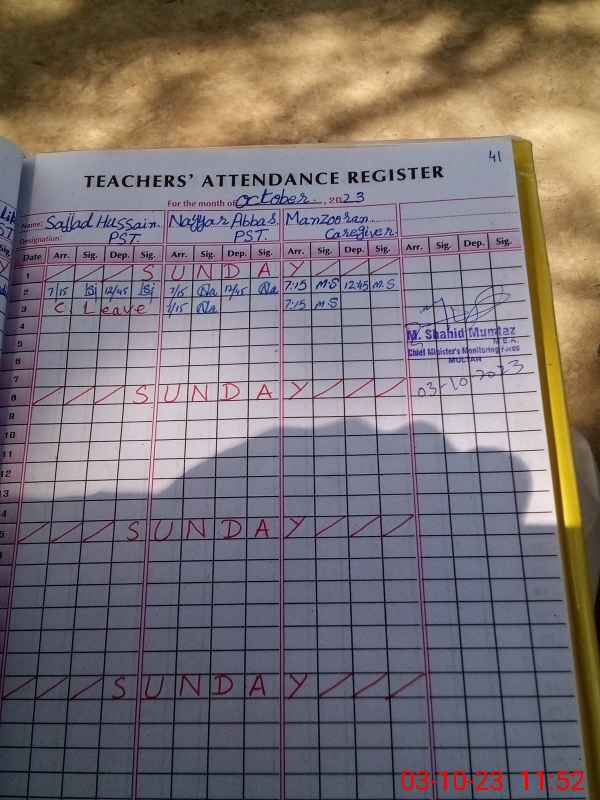 41
TEACHERS' ATTENDANCE REGISTER
For the month of October , 2023
Name: Sajjad Hussain. Nayyar Abbas. Manzooran.
Designation: PST. PST. Caregiver.
Date Arr. Sig. Dep. Sig. Arr. Sig. Dep. Sig. Arr. Sig. Dep. Sig. Arr. Sig. Dep. Sig.
1 SUNDAY
2 7/15 12/45 7/15 12/45 7:15 M.S 12:45 M.S
3 C Leave 7/15 7:15 M.S
4
5
6
7
8 SUNDAY
9
10
11
12
13
4
5 SUNDAY
SUNDAY
M. Shahid Mumtaz
M.E.A.
Chief Minister's Monitoring Force
MULTAN
03-10-2023
03-10-23 11:52